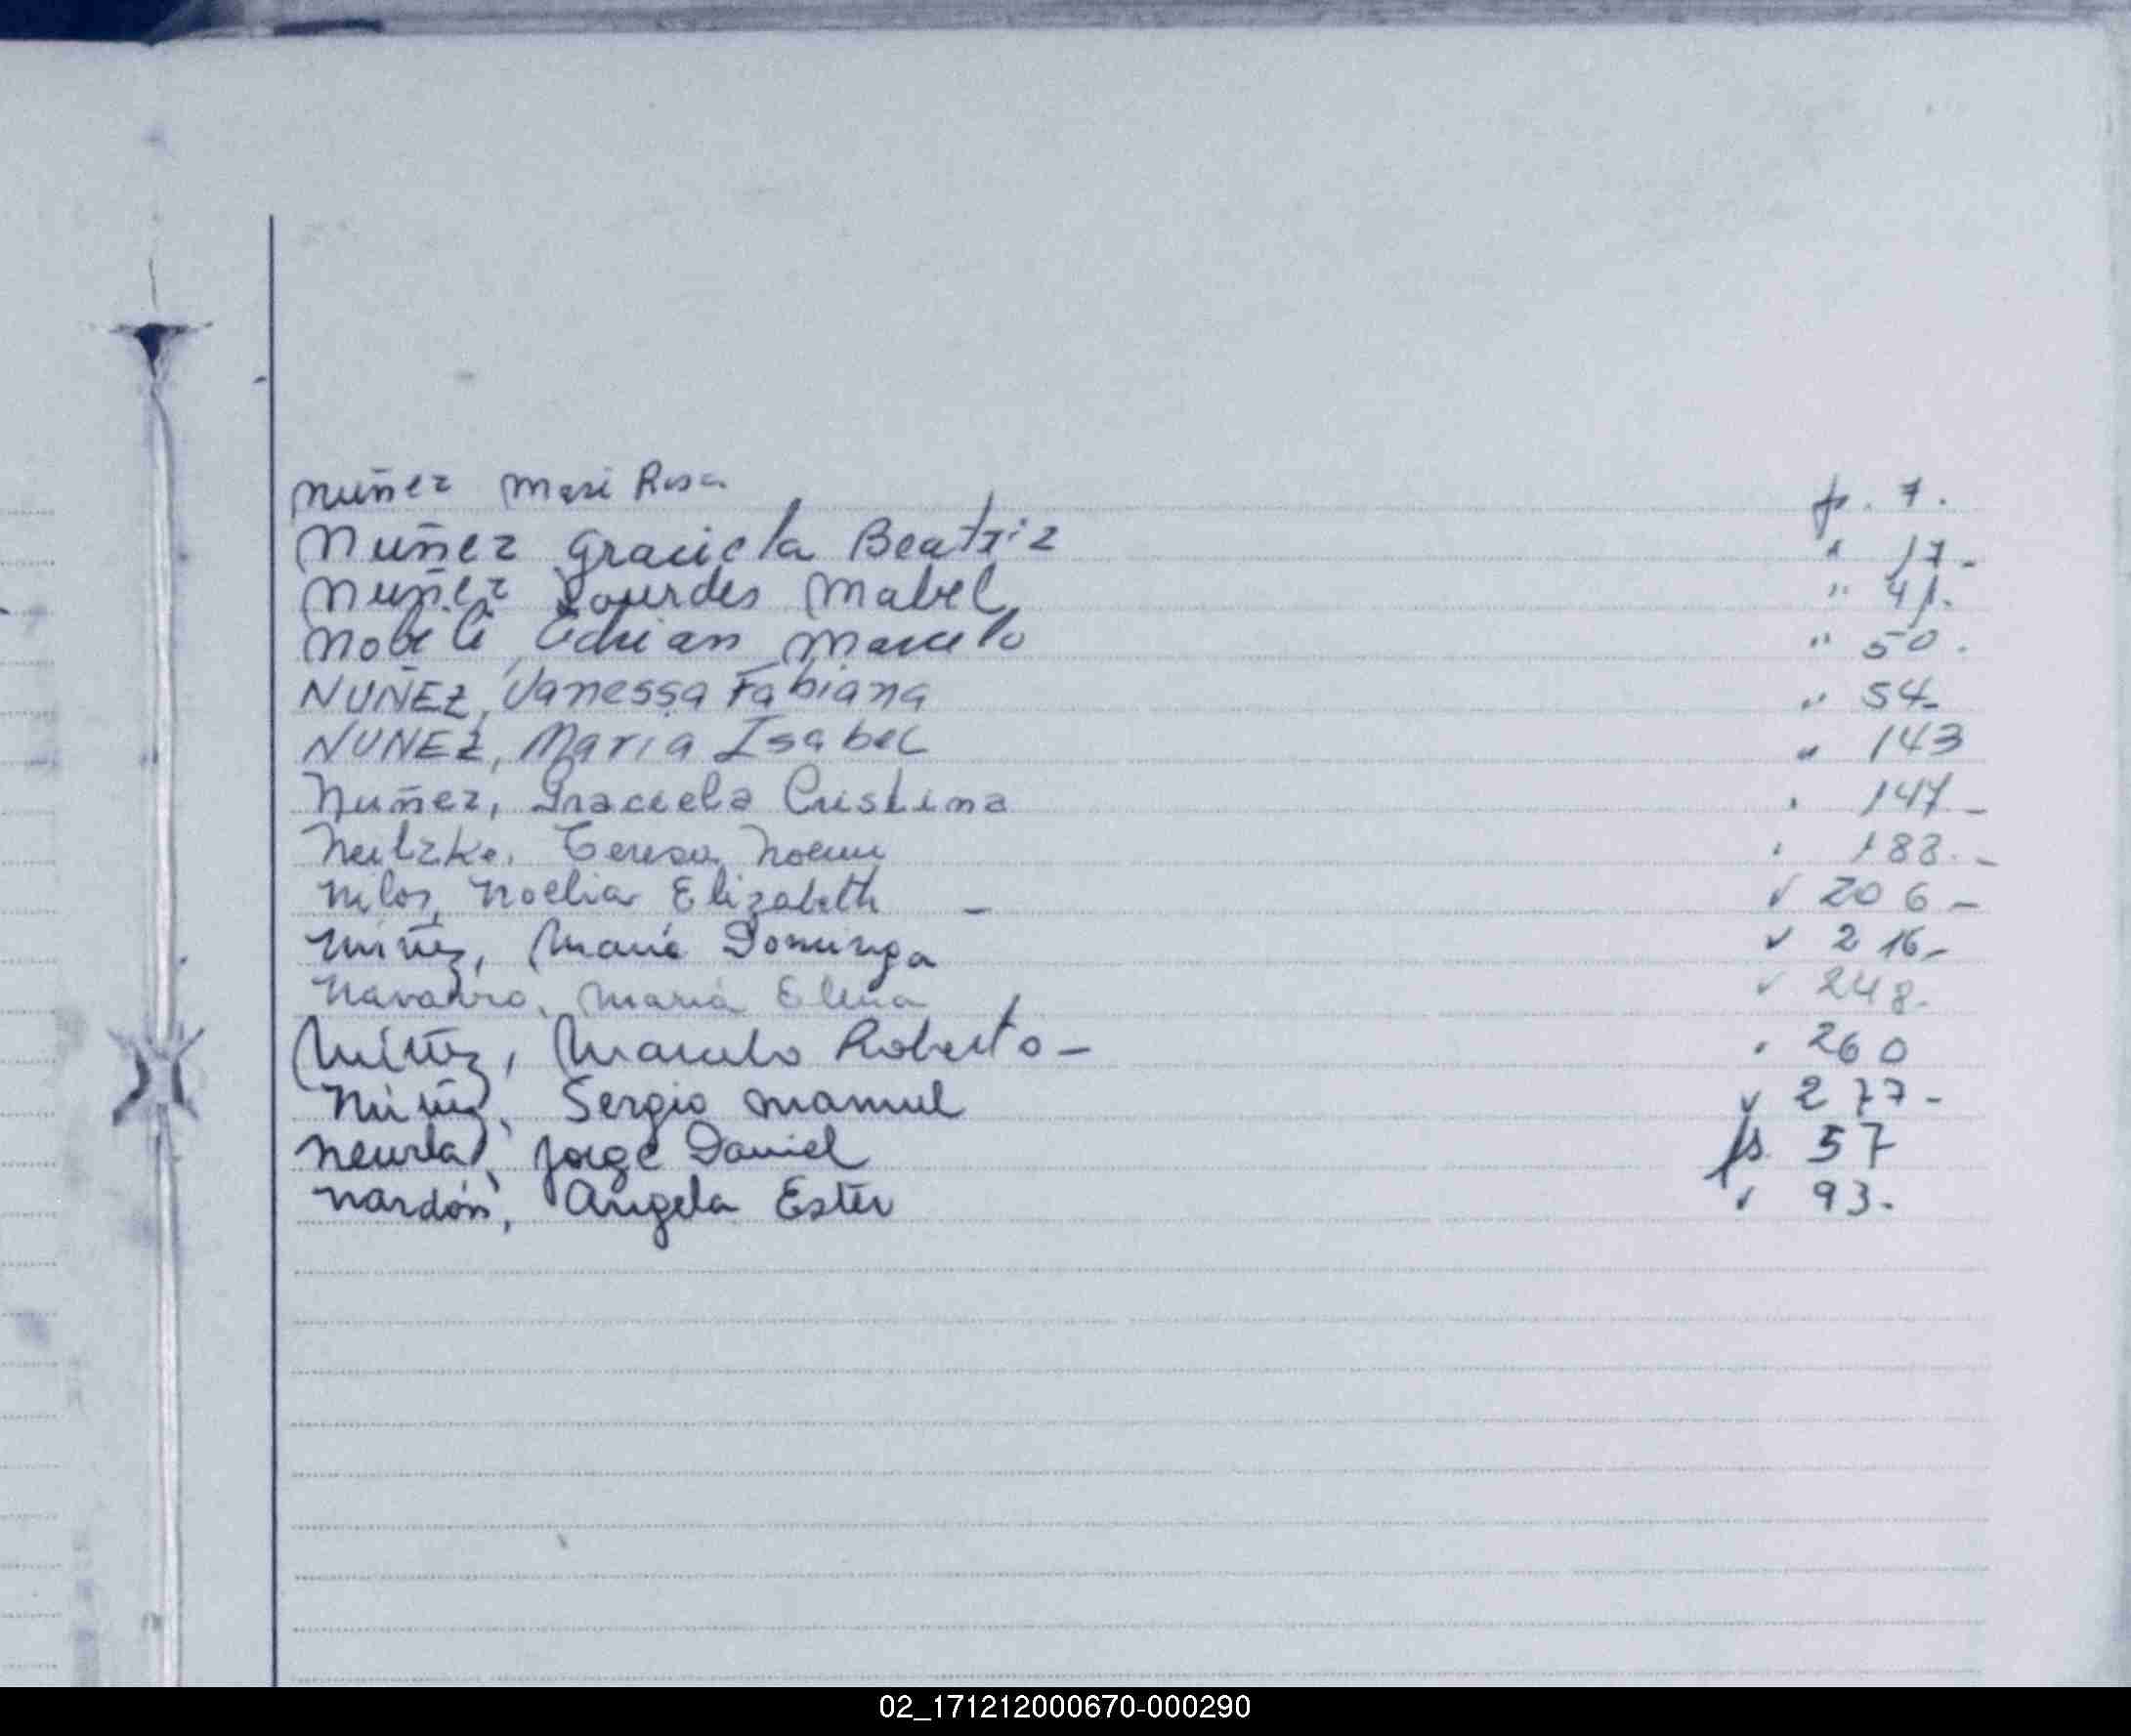 Nuñez Mari Rosa fs. 7.
Nuñez Graciela Beatriz " 17-
Nuñez Lourdes Mabel " 41.
Nobeli, Edrian Marcelo " 50.
NUÑEZ, Vanessa Fabiana " 54-
NUNEZ, Maria Isabel " 143
Nuñez, Graciela Cristina " 147-
Teresa Noemi " 188.-
Noelia Elizabeth - " 206-
Núñez, María Dominga " 216-
Navarro, María Elena " 248-
Núñez, Marcelo Roberto - " 260
Núñez, Sergio Manuel " 277-
Jorge Daniel fs. 57
Nardón, Angela Ester " 93.
02_171212000670-000290